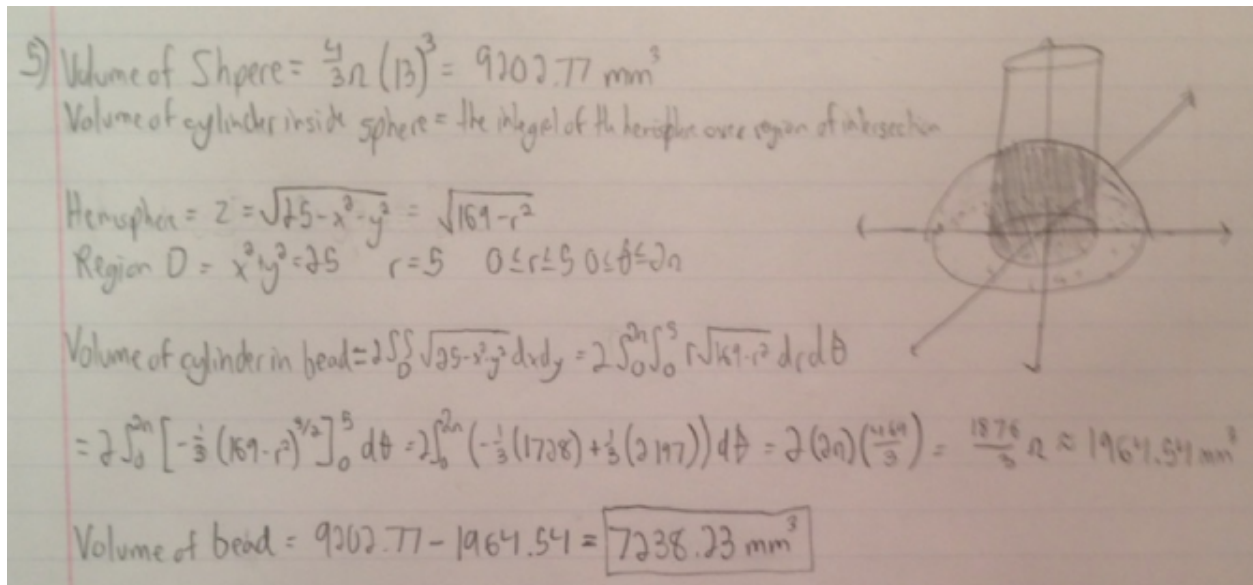 5) Volume of Shpere = 4/3 π (13)³ = 9202.77 mm³
Volume of cylinder inside sphere = the integel of th hemisphere over region of intersection
Hemisphere = z = √(25-x²-y²) = √(169-r²)
Region D = x²+y²=25 r=5 0≤r≤5 0≤θ≤2π
Volume of cylinder in bead = 2∬_D √(25-x²-y²) dxdy = 2∫₀^2π ∫₀^5 r√(169-r²) dr dθ
= 2∫₀^2π [-1/3 (169-r²)^3/2]₀^5 dθ = 2∫₀^2π (-1/3(1728)+1/3(2197)) dθ = 2(2π)(469/3) = 1876/3 π ≈ 1964.54 mm³
Volume of bead = 9202.77 - 1964.54 = 7238.23 mm³